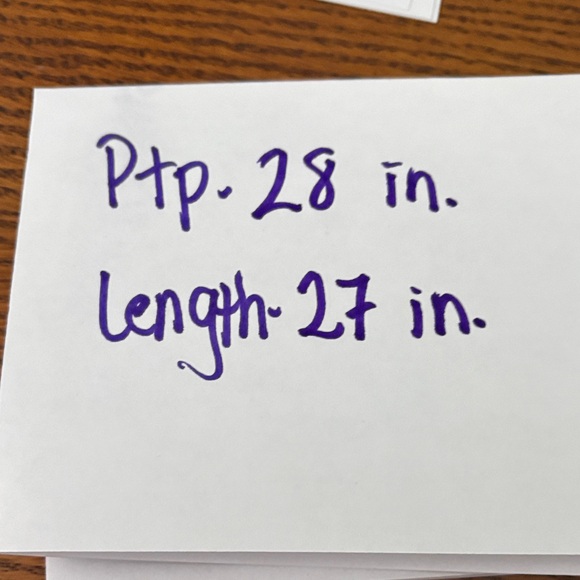 Ptp. 28 in.
length. 27 in.